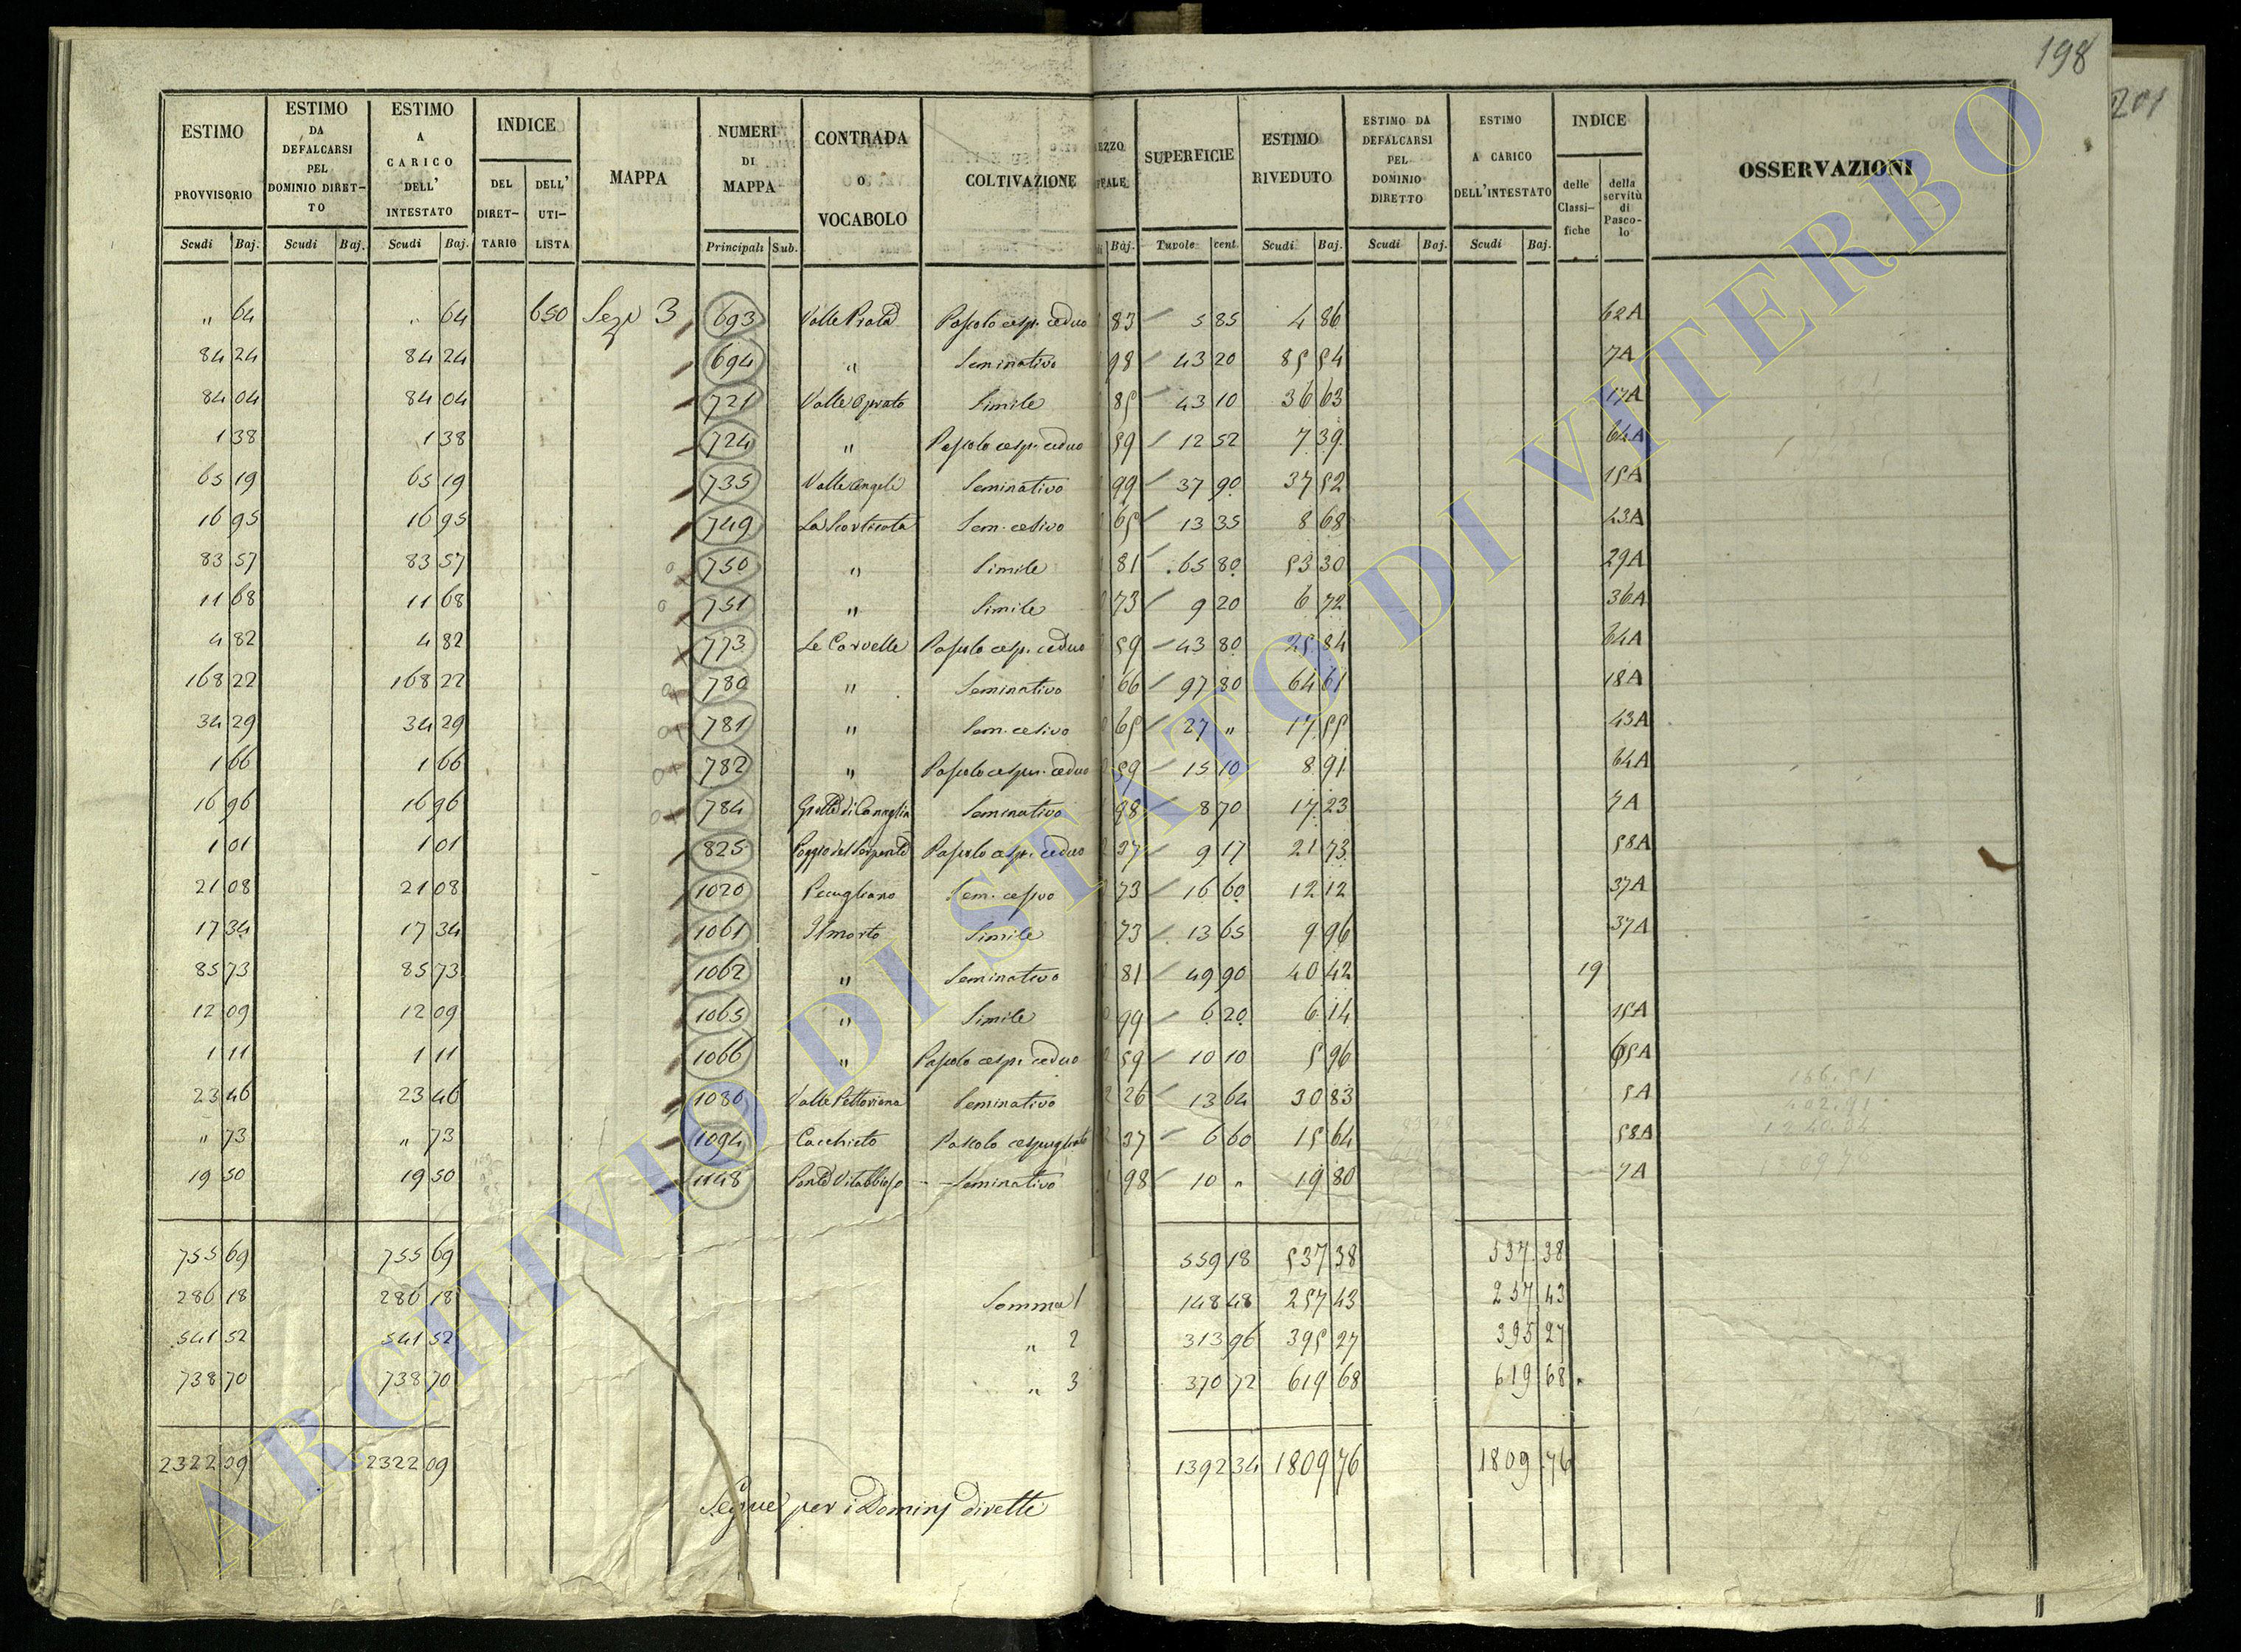 198
201
ESTIMO PROVVISORIO Scudi Baj. | ESTIMO DA DEFALCARSI PEL DOMINIO DIRET-TO Scudi Baj. | ESTIMO A CARICO DELL' INTESTATO Scudi Baj. | INDICE DEL DIRET-TARIO | DELL' UTI-LISTA | MAPPA | NUMERI DI MAPPA Principali Sub. | CONTRADA O VOCABOLO | COLTIVAZIONE | Baj. | SUPERFICIE Tavole cent. | ESTIMO RIVEDUTO Scudi Baj. | ESTIMO DA DEFALCARSI PEL DOMINIO DIRETTO Scudi Baj. | ESTIMO A CARICO DELL'INTESTATO Scudi Baj. | INDICE delle Classi-fiche | della servitù di Pasco-lo | OSSERVAZIONI
" 64 | " 64 | 650 | Sez 3 | 693 | Valle Prata | Pascolo cesp. ceduo | 83 | 5 85 | 4 86 | 62A
84 24 | 84 24 | 694 | " | Seminativo | 98 | 43 20 | 85 54 | 7A
84 04 | 84 04 | 721 | Valle | Simile | 85 | 43 10 | 36 63 | 17A
1 38 | 1 38 | 724 | " | Pascolo cesp. ceduo | 59 | 12 52 | 7 39 | 64A
65 19 | 65 19 | 735 | Valle angeli | Seminativo | 99 | 37 90 | 37 52 | 15A
16 95 | 16 95 | 749 | La Scorticata | Sem. cesivo | 65 | 13 35 | 8 68 | 43A
83 57 | 83 57 | 750 | " | Simile | 81 | 65 80 | 53 30 | 29A
11 68 | 11 68 | 751 | " | Simile | 73 | 9 20 | 6 72 | 36A
4 82 | 4 82 | 773 | Le Carvelle | Pascolo cesp. ceduo | 59 | 43 80 | 25 84 | 64A
168 22 | 168 22 | 780 | " | Seminativo | 66 | 97 80 | 64 61 | 18A
34 29 | 34 29 | 781 | " | Sem. cesivo | 65 | 27 " | 17 55 | 43A
1 66 | 1 66 | 782 | " | Pascolo cesp. ceduo | 59 | 15 10 | 8 91 | 64A
16 96 | 16 96 | 784 | Grotte di | Seminativo | 98 | 8 70 | 17 23 | 7A
1 01 | 1 01 | 825 | Poggio del Serpente | Pascolo cesp. ceduo | 37 | 9 17 | 21 73 | 58A
21 08 | 21 08 | 1020 | Pecugliano | Sem. cesivo | 73 | 16 60 | 12 12 | 37A
17 34 | 17 34 | 1061 | Il morto | Simile | 73 | 13 65 | 9 96 | 37A
85 73 | 85 73 | 1062 | " | Seminativo | 81 | 49 90 | 40 42 | 19
12 09 | 12 09 | 1065 | " | Simile | 99 | 6 20 | 6 14 | 15A
1 11 | 1 11 | 1066 | " | Pascolo cesp. ceduo | 59 | 10 10 | 5 96 | 65A
23 46 | 23 46 | 1080 | Valle | Seminativo | 2 26 | 13 64 | 30 83 | 5A
" 73 | " 73 | 1094 | Cacchieto | Pascolo cespugliato | 37 | 6 60 | 15 64 | 58A
19 50 | 19 50 | 1148 | Ponte | Seminativo | 1 98 | 10 " | 19 80 | 7A
755 69 | 755 69 | 559 18 | 537 38 | 537 38
286 18 | 286 18 | Somma 1 | 148 48 | 257 43 | 257 43
541 52 | 541 52 | " 2 | 313 96 | 395 27 | 395 27
738 70 | 738 70 | " 3 | 370 72 | 619 68 | 619 68
2322 09 | 2322 09 | 1392 34 | 1809 76 | 1809 76
Segue per i Dominj diretti
ARCHIVIO DI STATO DI VITERBO